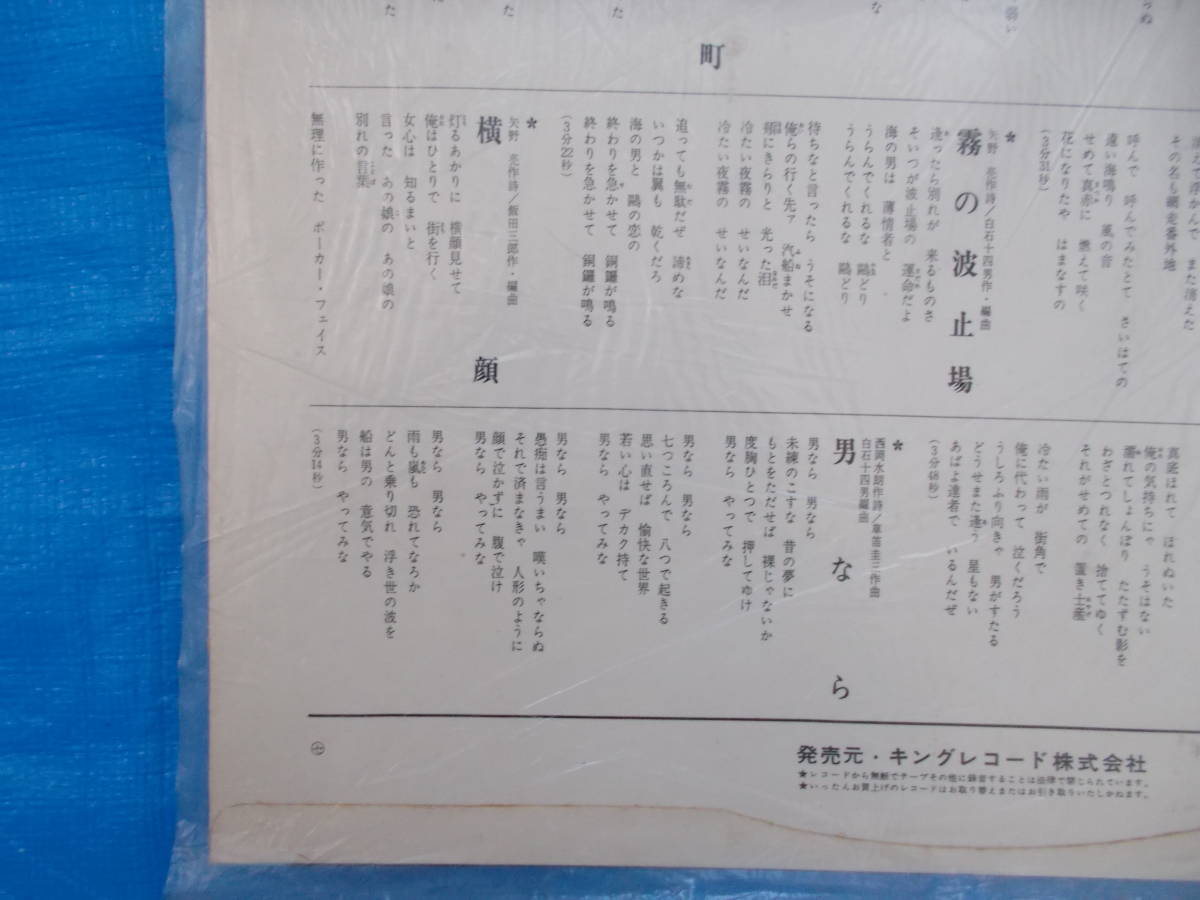 ぬ
弱い
な
町
た
た
た
浮かんで また消えた
その名も網走番外地
呼んで 呼んでみたとて さいはての
遠い海鳴り 風の音
せめて真赤に 燃えて咲く
花になりたや はまなすの
(3分31秒)
*
霧の波止場
矢野 亮作詩/白石十四男作・編曲
逢ったら別れが 来るものさ
そいつが波止場の 運命だよ
海の男は 薄情者と
うらんでくれるな 鷗どり
うらんでくれるな 鷗どり
待ちなと言ったら うそになる
俺らの行く先ァ 汽船まかせ
頬にきらりと 光った泪
冷たい夜霧の せいなんだ
冷たい夜霧の せいなんだ
追っても無駄だぜ 諦めな
いつかは翼も 乾くだろ
海の男と 鷗の恋の
終わりを急かせて 銅鑼が鳴る
終わりを急かせて 銅鑼が鳴る
(3分22秒)
*
横顔
矢野 亮作詩/飯田三郎作・編曲
灯るあかりに 横顔見せて
俺はひとりで 街を行く
女心は 知るまいと
言った あの娘の あの娘の
別れの言葉
無理に作った ポーカー・フェイス
真底ほれて ほれぬいた
俺の気持ちにゃ うそはない
濡れてしょんぼり たたずむ影を
わざとつれなく 捨ててゆく
それがせめての 置き土産
冷たい雨が 街角で
俺に代わって 泣くだろう
うしろふり向きゃ 男がすたる
どうせまた逢う 星もない
あばよ達者で いるんだぜ
(3分48秒)
*
男なら
西岡水朗作詩/草笛圭三作曲
白石十四男編曲
男なら 男なら
未練のこすな 昔の夢に
もとをただせば 裸じゃないか
度胸ひとつで 押してゆけ
男なら やってみな
男なら 男なら
七つころんで 八つで起きる
思い直せば 愉快な世界
若い心は デカク持て
男なら やってみな
男なら 男なら
愚痴は言うまい 嘆いちゃならぬ
それで済まなきゃ 人形のように
顔で泣かずに 腹で泣け
男なら やってみな
男なら 男なら
雨も嵐も 恐れてなろか
どんと乗り切れ 浮き世の波を
船は男の 意気でやる
男なら やってみな
(3分14秒)
発売元・キングレコード株式会社
★レコードから無断でテープその他に録音することは法律で禁じられています。
★いったんお買上げのレコードはお取り替えまたはお引き取りいたしかねます。